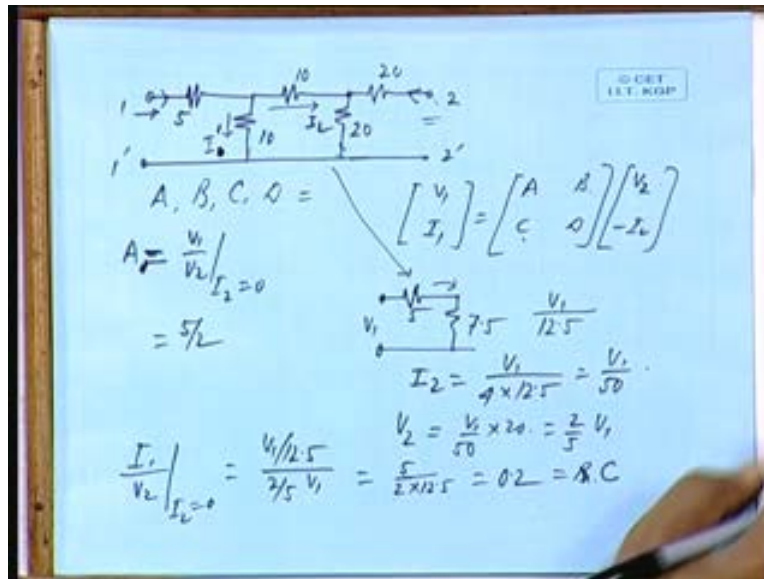 © CET
I.I.T. KGP
10
20
1
5
I'
10
I2
20
2
1'
2'
A, B, C, D =
[V1 I1] = [A B C D] [V2 -I2]
A = V1/V2 | I2=0
= 5/2
V1
5
7.5
V1/12.5
I2 = V1/(4×12.5) = V1/50
V2 = V1/50 × 20 = 2/5 V1
I1/V2 | I2=0 = (V1/12.5)/(2/5 V1) = 5/(2×12.5) = 0.2 = C